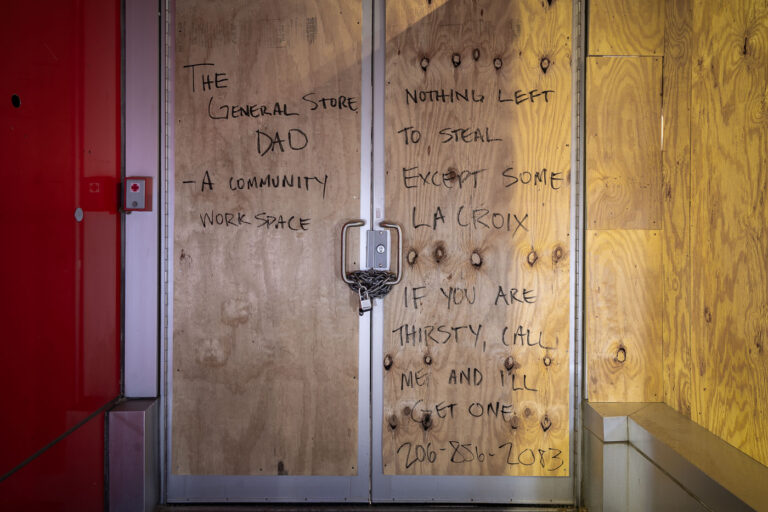 THE
GENERAL STORE
DAD
- A COMMUNITY
WORKSPACE
NOTHING LEFT
TO STEAL
EXCEPT SOME
LA CROIX
IF YOU ARE
THIRSTY, CALL
ME AND I'LL
GET ONE.
206-856-2083